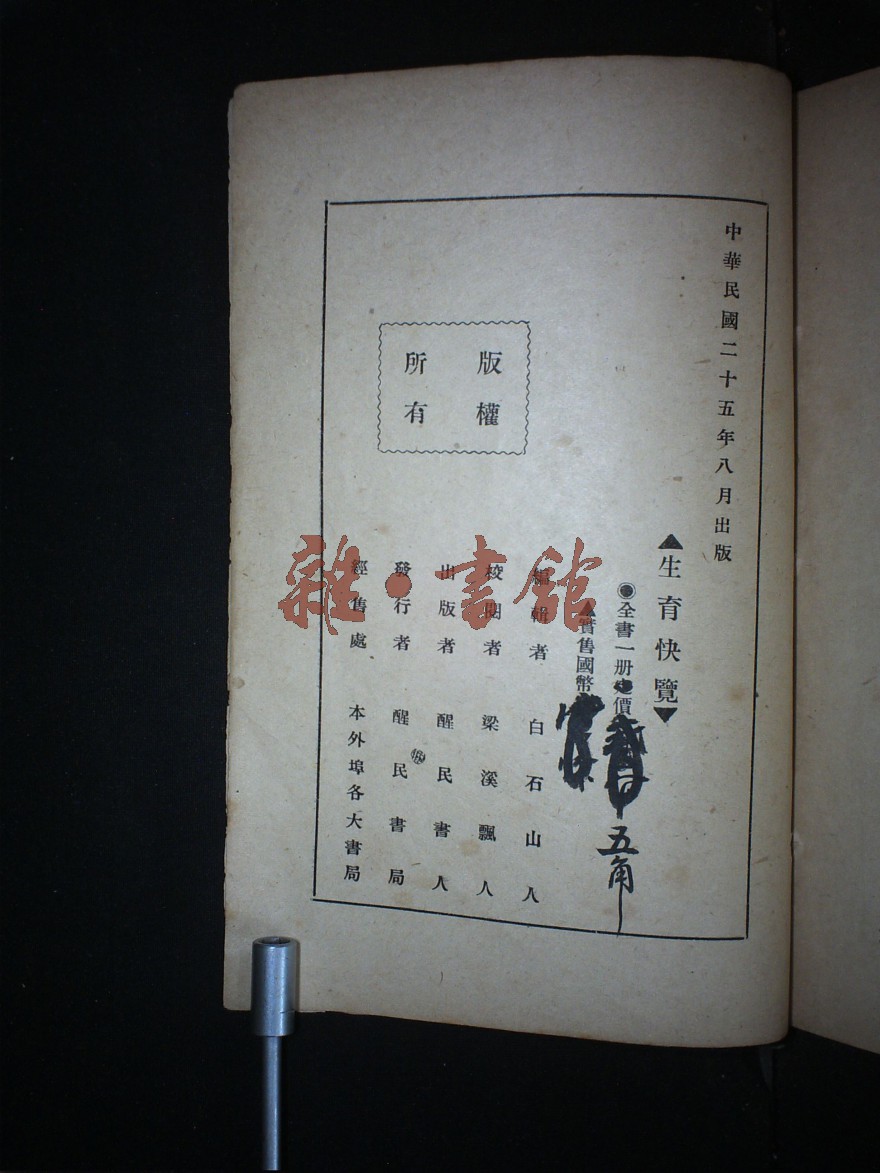 中華民國二十五年八月出版
▲生育快覽▼
◉全書一册定價
五角
▲實售國幣
編輯者 白石山人
校閱者 梁溪飄人
出版者 醒民書人
發行者 醒民書局
經售處 本外埠各大書局
版權
所有
雜·書館